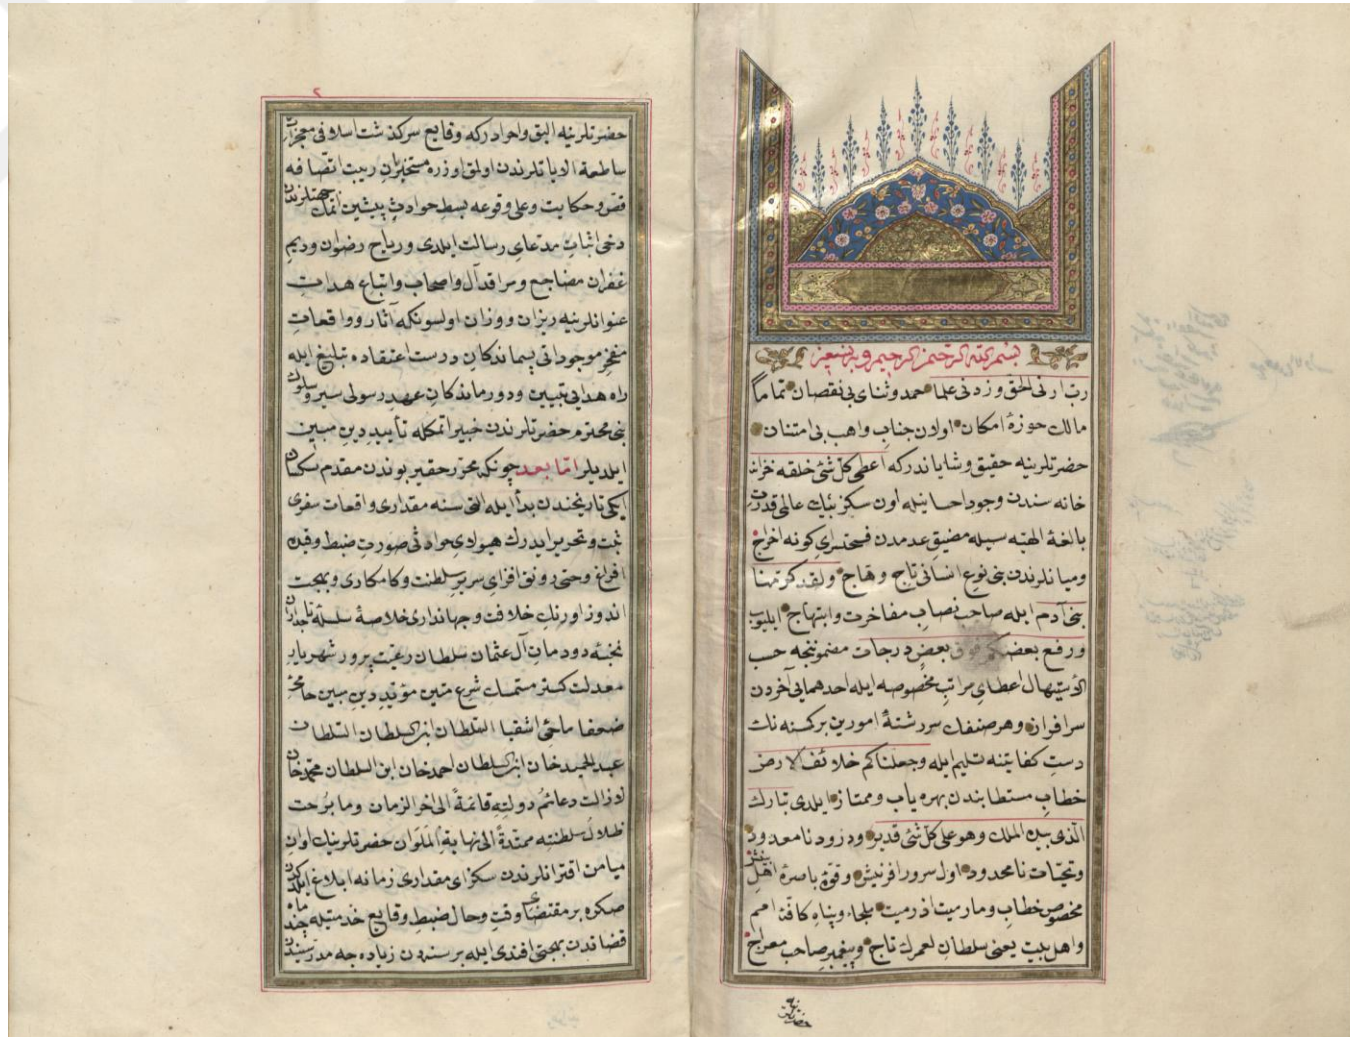 بسم الله الرحمن الرحيم وبه نستعين
رب ارنی الحق وزدنی علما حمد وثنای بی نقصان تماما
مالك حوزۀ امکان اولان جناب واهب بی امتنان
حضرتلرینه حقیق وشایاندرکه اعطی کل شئ خلقه خزانۀ
خانه سندن وجود احسانیله اون سکز بیك عالمی قدرت
بالغۀ الهیه سیله مضیق عدمدن فسحتسرای کونه اخراج
ومیانلرندن بنی نوع انسانی تاج وهاج ولقد کرمنا
بنی آدم ایله صاحب نصاب مفاخرت وابتهاج ایلیوب
ورفع بعضکم فوق بعض درجات مضموننجه حسب
الاستیهال اعطای مراتب مخصوصه ایله احدهمایی آخردن
سرافراز وهر صنفك سررشتۀ امورین برکسنه نك
دست کفایتنه تسلیم ایله وجعلناکم خلائف الارض
خطاب مستطابندن بهره یاب وممتاز ایلدی تبارك
الذی بیده الملك وهو علی کل شئ قدیر ودرود نامعدود
وتحیات نامحدود اول سرور افرینش وقوۀ باصرۀ اهل بینش
مخصوص خطاب ومارمیت اذ رمیت ملجاء وپناه کافۀ امم
واهل بیت یعنی سلطان لعمرك تاج وپیغمبر صاحب معراج
حضرتلرینه الیق واحرادرکه وقایع سرکذشت اسلافی معجزات
ساطعة الایاتلرندن اولمق اوزره مستخبران ریبت اتصافه
قص وحکایت وعلی وقوعه بسط حوادث پیشین اتمك جهتلرندن
دخی اثبات مدعای رسالت ایلدی وریاح رضوان ودیم
غفران مضاجع ومراقد آل واصحاب واتباع هدایت
عنوانلرینه ریزان ووزان اولسونکه آثار وواقعات
مفخر موجوداتی پسماندکان درست اعتقاده تبلیغ ایله
راه هدایی تبیین ودورماندکان عهد رسولی سیر وسلوك
نبی محترم حضرتلرندن خبیر اتمکله تأیید دین مبین
ایلدیلر اما بعد چونکه محرر حقیر بوندن مقدم سکسان
ایکی تاریخندن بدأ ایله التی سنه مقداری واقعات سفری
ثبت وتحریر ایدرك هیولای حوادثی صورت ضبط وقیده
افراغ وحتی رونق افزای سریر سلطنت وکامکاری وبهجت
اندوز اورنك خلافت وجهانداری خلاصۀ سلسلۀ تاجداران
نخبۀ دودمان آل عثمان سلطان رعیت پرور شهریار
معدلت کستر متمسك شرع متین مؤید دین مبین حامئ
ضعفا ماحئ اشقیا السلطان ابن السلطان السلطان
عبدالحمید خان ابن السلطان احمد خان ابن السلطان محمد خان
لازالت دعائم دولته قائمة الی اخر الزمان وما برحت
ظلال سلطنته ممتدة الی نهایة الملوان حضرتلرینك اوان
میامن اقترانلرندن سکز ای مقداری زمانه ابلاغ ایلدکدن
صکره بر مقتضای وقت وحال ضبط وقایع خدمتیله چند ماه
قضاتدن بهجتی افندی ایله بر سنه دن زیاده جه مدرسیندن